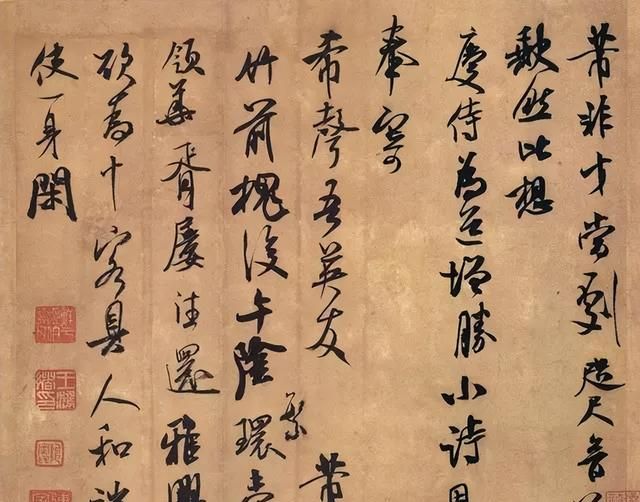 芾非才當劇咫尺音
然比想
慶侍為道增勝小詩因
奉寄
希聲吾英友 芾
竹前槐後午陰環壺
領華胥屢往還雅興
欲為十客具人和端
使一身閑